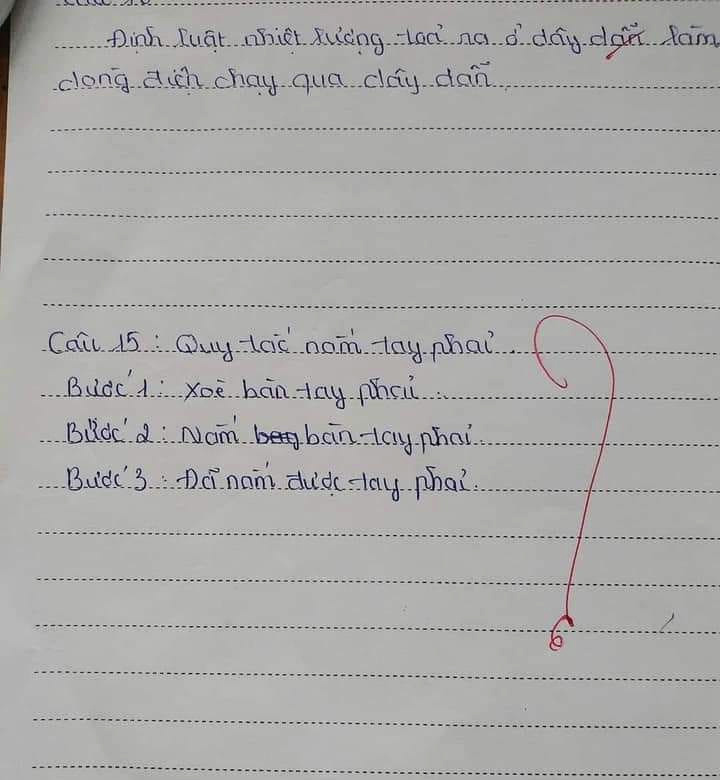 Định luật nhiệt lượng toả ra ở dây dẫn làm
dòng điện chạy qua dây dẫn
Câu 15 : Quy tắc nắm tay phải.
Bước 1 : xoè bàn tay phải.
Bước 2 : Nắm bàn tay phải.
Bước 3 : Đã nắm được tay phải.